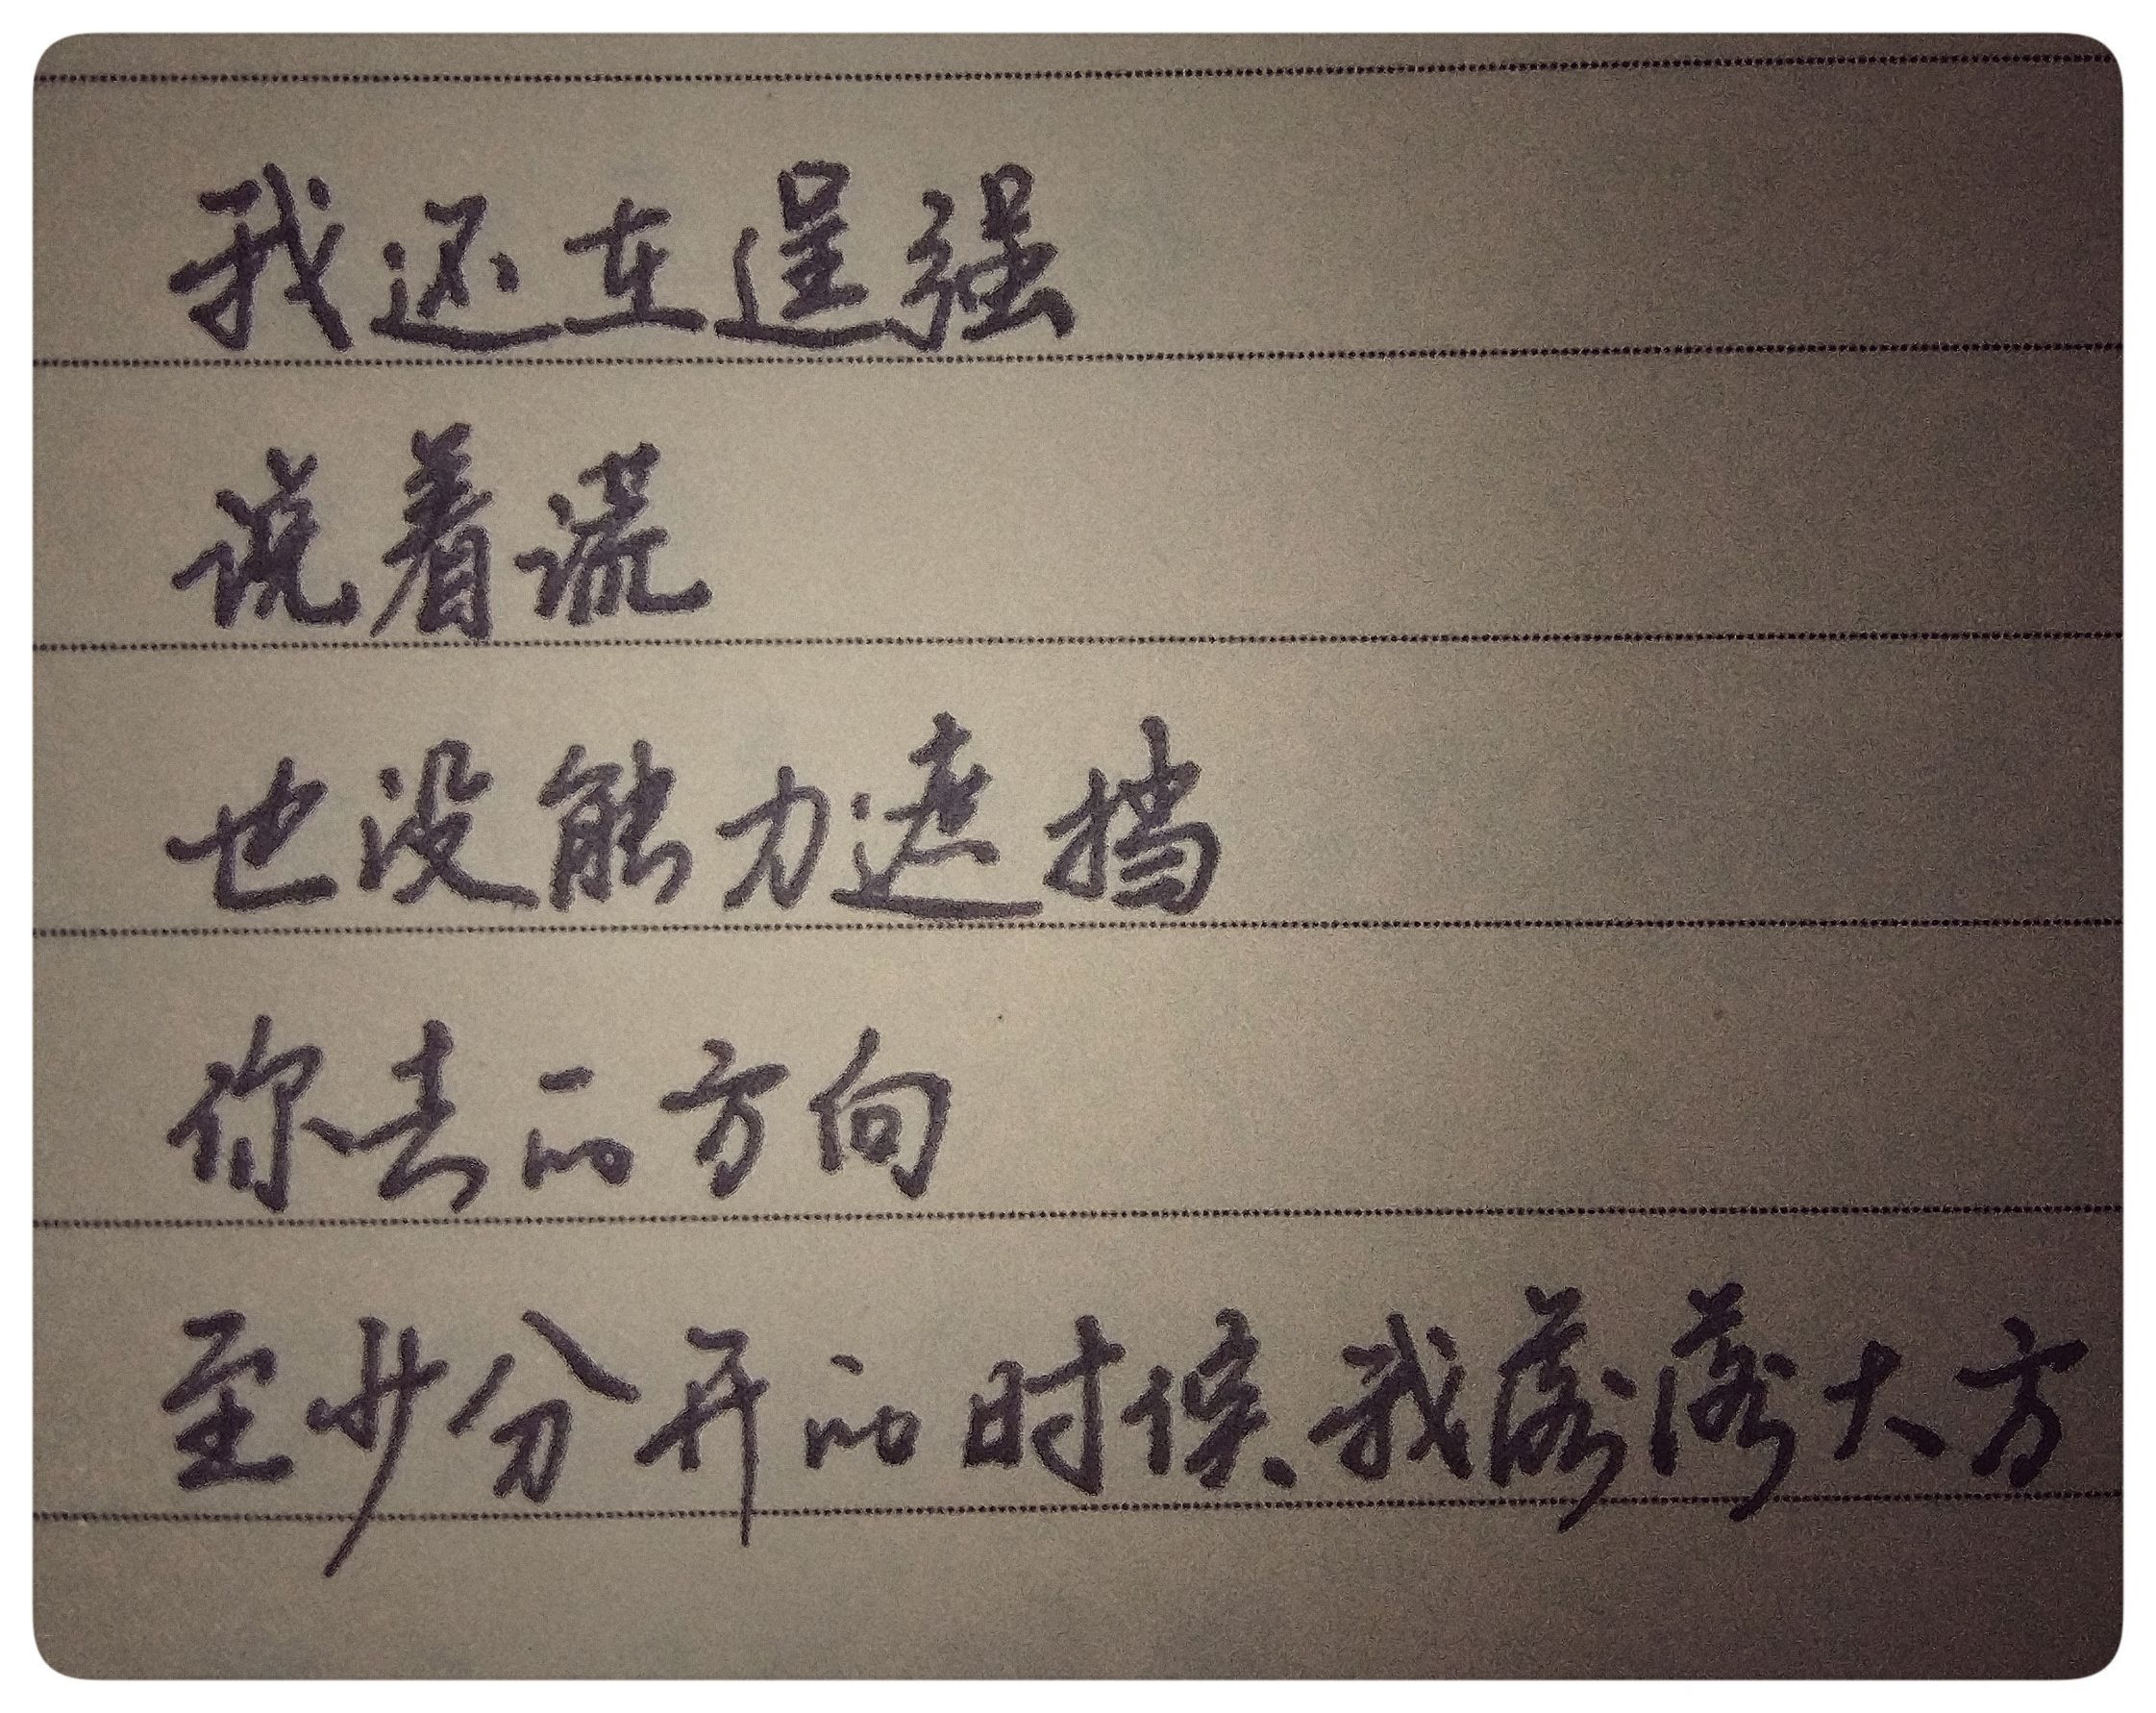 我还在逞强
说着谎
也没能力遮挡
你去的方向
至少分开的时候、我落落大方